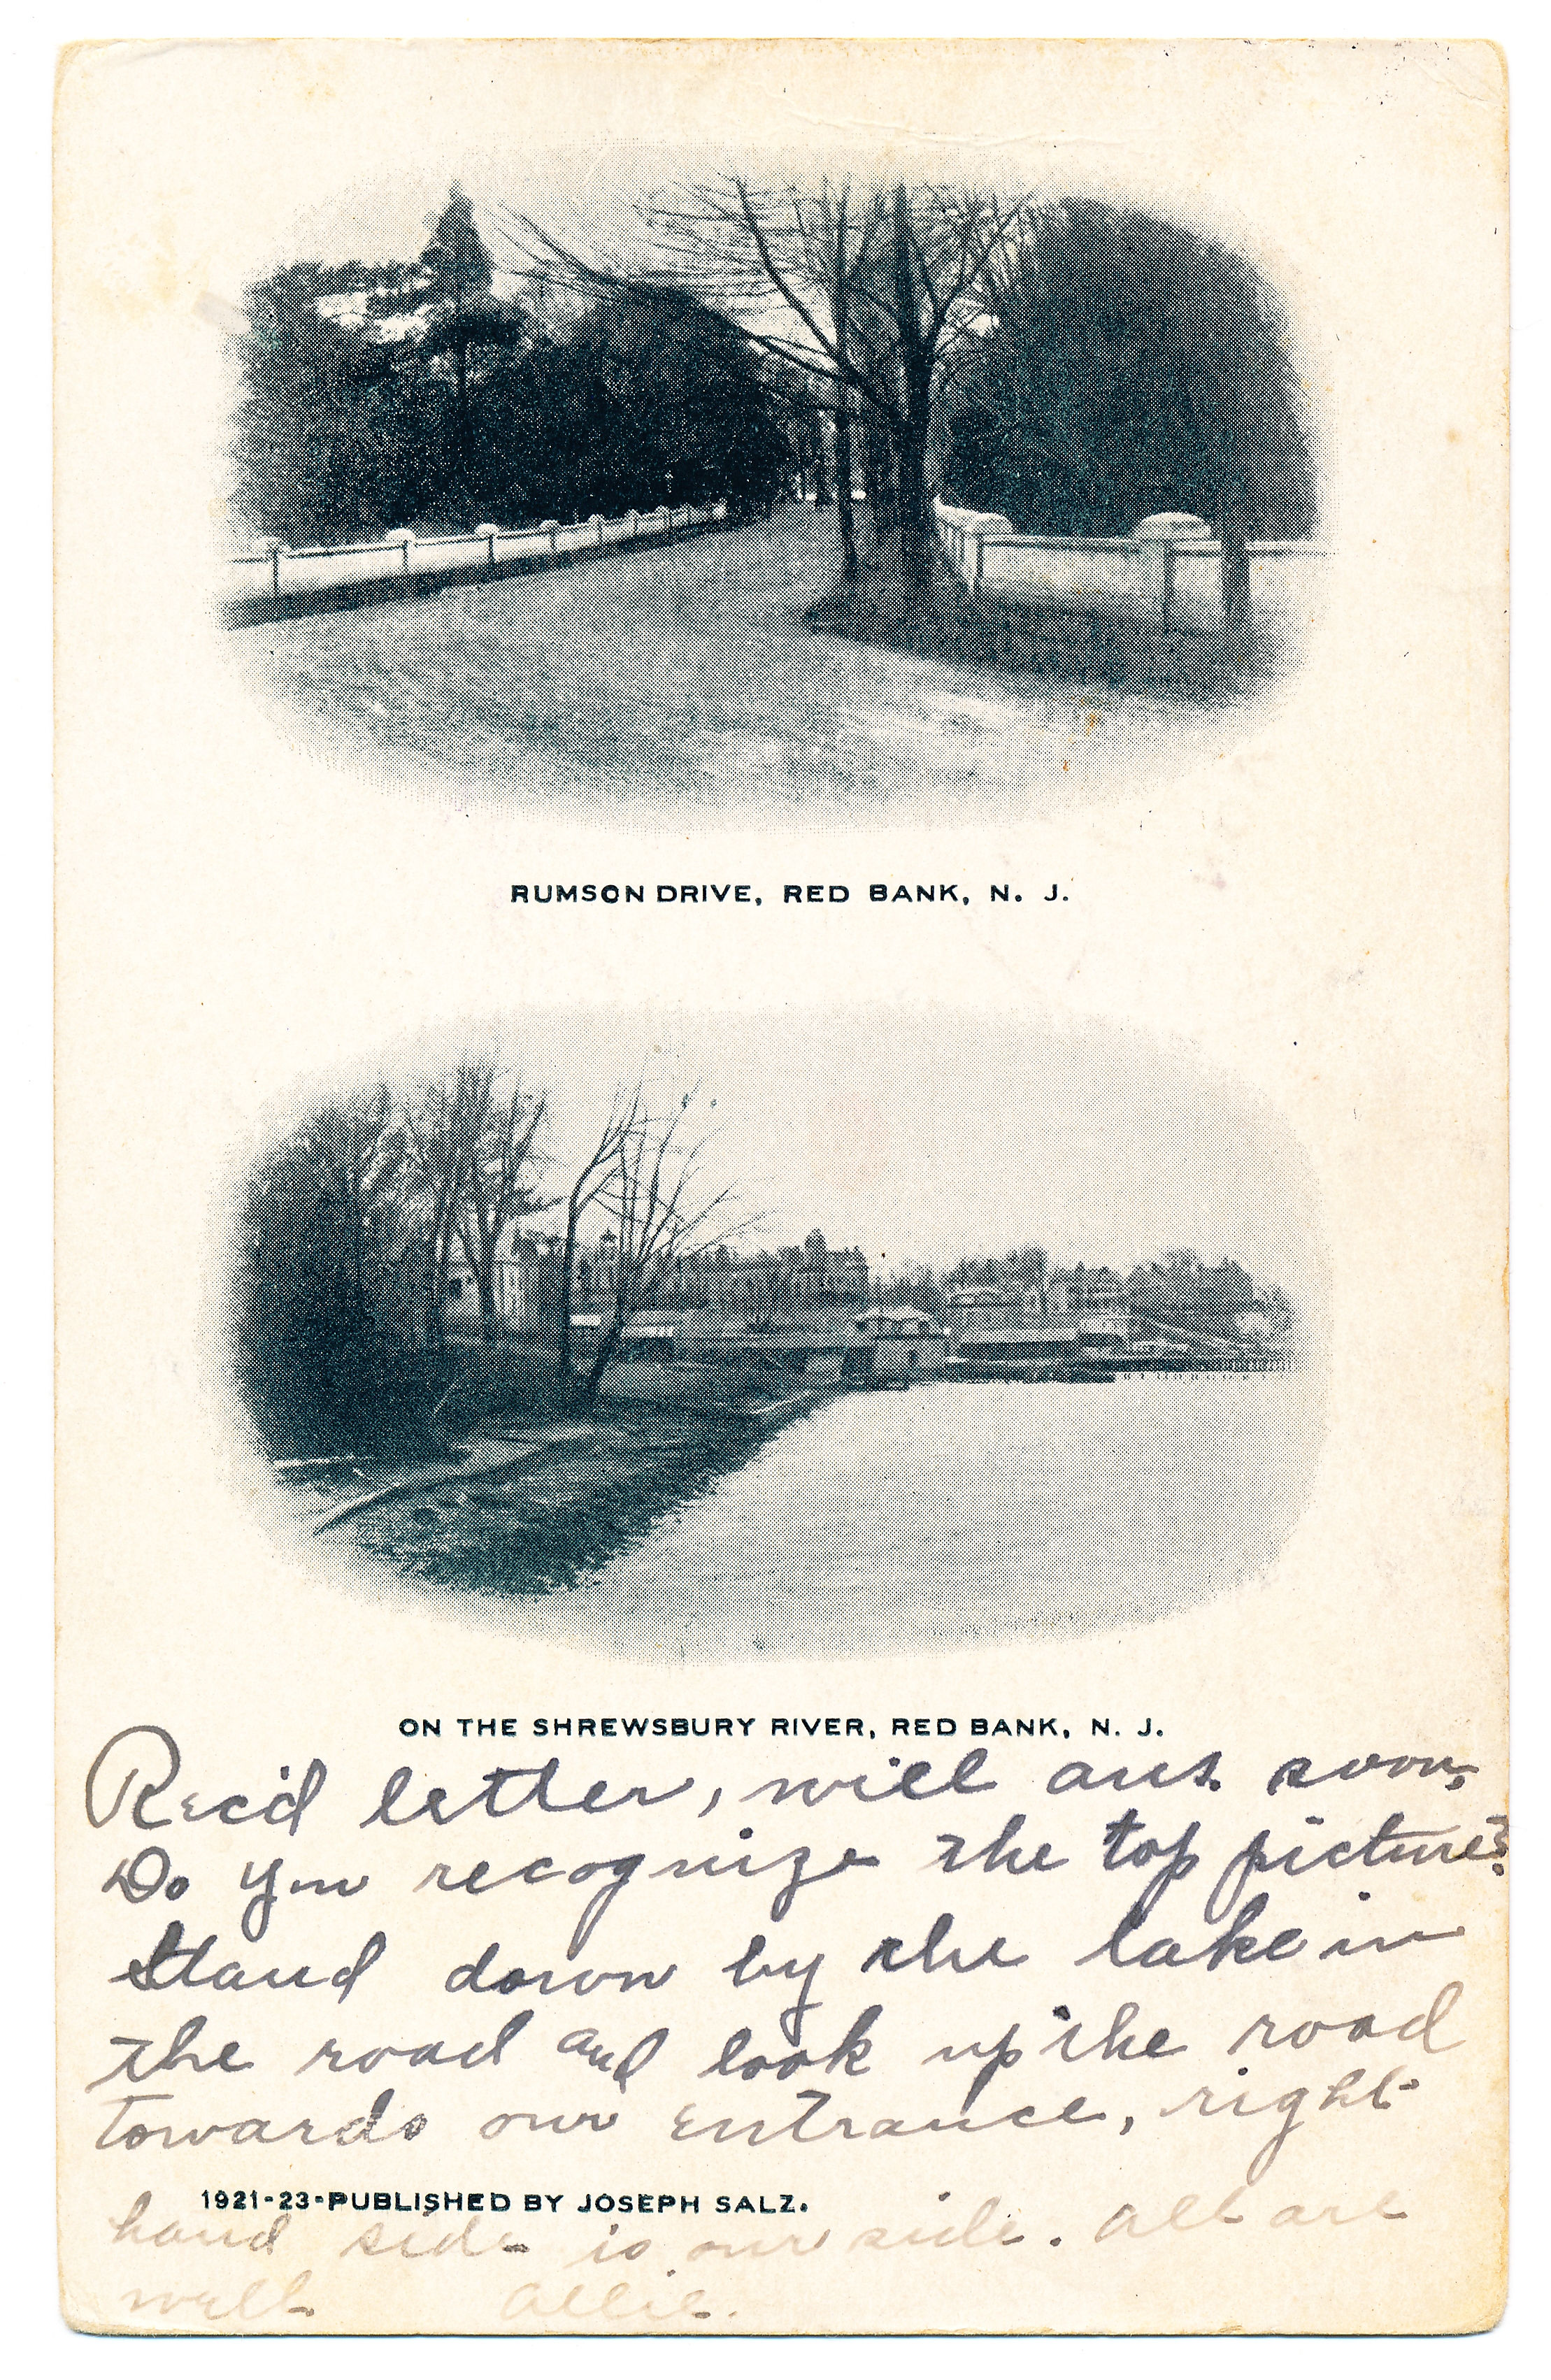 RUMSON DRIVE, RED BANK, N. J.
ON THE SHREWSBURY RIVER, RED BANK, N. J.
Rec'd letter, will ans. soon,
Do you recognize the top picture?
Stand down by the lake in
the road and look up the road
towards our entrance, right
1921-23-PUBLISHED BY JOSEPH SALZ.
hand side is our side. All are
well Allie.